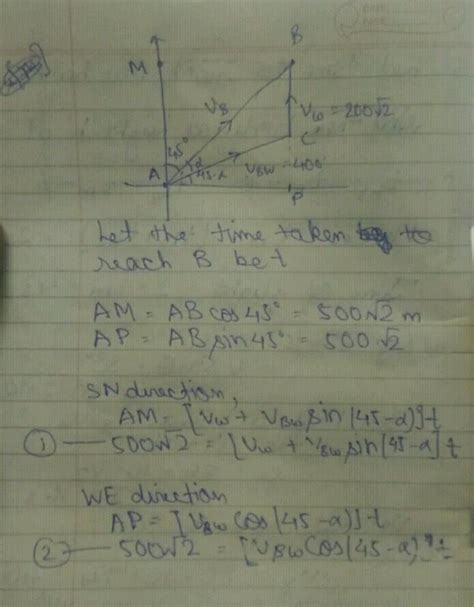 B
M
V_B
V_W = 200√2
C
45°
α
A
45-α
V_BW = 400
P
Let the time taken to
reach B be t
AM = AB cos 45° = 500√2 m
AP = AB sin 45° = 500√2
SN direction,
AM = [V_W + V_BW sin (45-α)] t
① — 500√2 = [V_W + V_BW sin (45-α] t
WE direction
AP = [V_BW cos (45-α)] t
② — 500√2 = [V_BW cos (45-α)] t